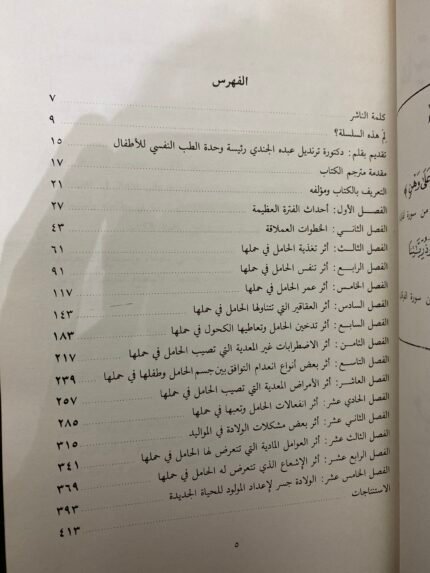 الفهرس
كلمة الناشر ٧
لِمَ هذه السلسلة؟ ٩
تقديم بقلم: دكتورة ترنديل عبده الجندي رئيسة وحدة الطب النفسي للأطفال ١٥
مقدمة مترجم الكتاب ١٧
التعريف بالكتاب ومؤلفه ٢١
الفصل الأول: أحداث الفترة العظيمة ٢٧
الفصل الثاني: الخطوات العملاقة ٤٣
الفصل الثالث: أثر تغذية الحامل في حملها ٦١
الفصل الرابع: أثر تنفس الحامل في حملها ٩١
الفصل الخامس: أثر عمر الحامل في حملها ١١٧
الفصل السادس: أثر العقاقير التي تتناولها الحامل في حملها ١٤٣
الفصل السابع: أثر تدخين الحامل وتعاطيها الكحول في حملها ١٨٣
الفصل الثامن: أثر الاضطرابات غير المعدية التي تصيب الحامل في حملها ٢١٧
الفصل التاسع: أثر بعض أنواع انعدام التوافق بين جسم الحامل وطفلها في حملها ٢٣٩
الفصل العاشر: أثر الأمراض المعدية التي تصيب الحامل في حملها ٢٥٧
الفصل الحادي عشر: أثر انفعالات الحامل وتعبها في حملها ٢٨٥
الفصل الثاني عشر: أثر بعض مشكلات الولادة في المواليد ٣١٥
الفصل الثالث عشر: أثر العوامل المادية التي تتعرض لها الحامل في حملها ٣٤١
الفصل الرابع عشر: أثر الإشعاع الذي تتعرض له الحامل في حملها ٣٦٩
الفصل الخامس عشر: الولادة جسر لإعداد المولود للحياة الجديدة ٣٩٣
الاستنتاجات ٤١٣
٥
عَلَى وَهْنٍ﴾
من سورة
من سورة